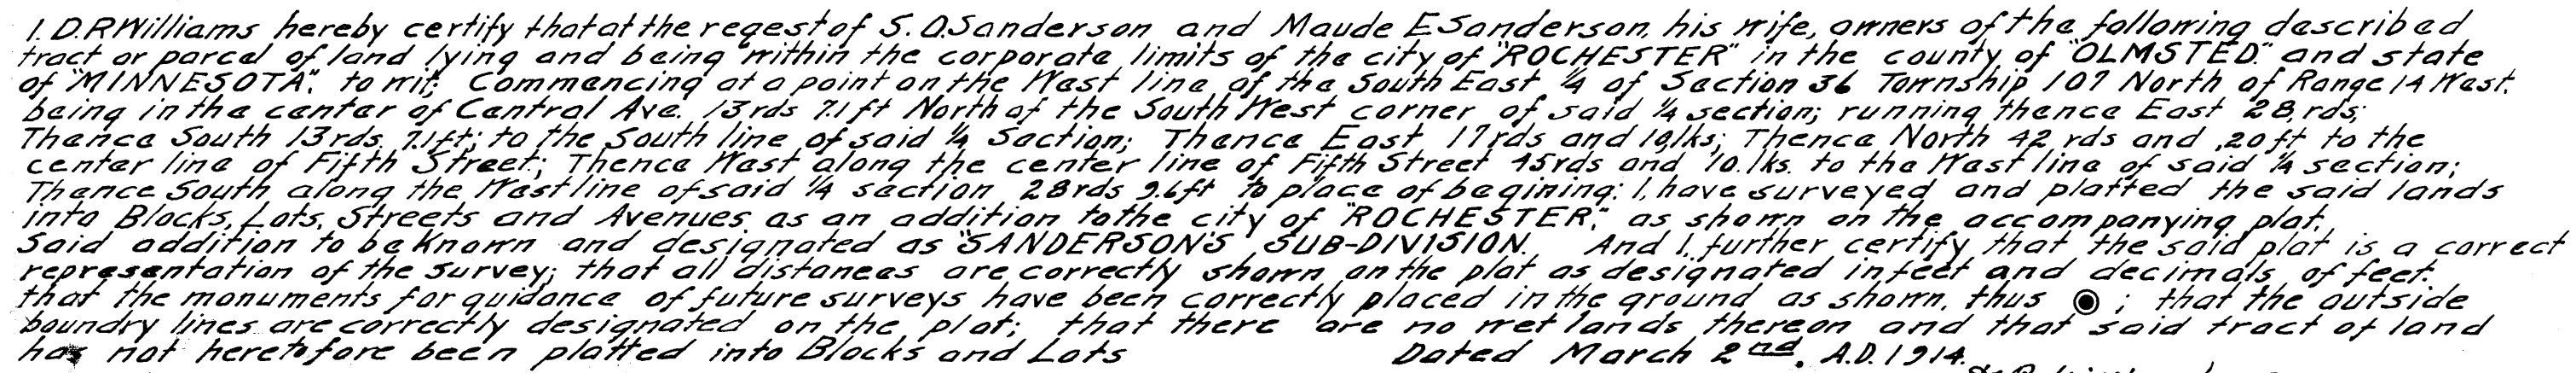 I. D.R Williams hereby certify that at the reqest of S. O. Sanderson and Maude E Sanderson, his wife, owners of the following described
tract or parcel of land lying and being within the corporate limits of the city of "ROCHESTER" in the county of "OLMSTED." and state
of "MINNESOTA". to wit; Commencing at a point on the West line of the South East ¼ of Section 36 Township 107 North of Range 14 West.
being in the center of Central Ave. 13 rds 7.1 ft North of the South West corner of said ¼ section; running thence East 28, rds;
Thence South 13 rds 7.1 ft; to the South line of said ¼ Section; Thence East 17 rds and 10, lks; Thence North 42 rds and .20 ft to the
center line of Fifth Street; Thence West along the center line of Fifth Street 45 rds and 10. lks. to the West line of said ¼ section;
Thence South along the West line of said ¼ section 28 rds 9.6 ft to place of begining: I, have surveyed and platted the said lands
into Blocks, Lots, Streets and Avenues as an addition to the city of "ROCHESTER", as shown on the accompanying plat.
Said addition to be Known and designated as "SANDERSON'S SUB-DIVISION. And I, further certify that the said plat is a correct
representation of the survey; that all distances are correctly shown on the plat as designated in feet and decimals of feet.
that the monuments for guidance of future surveys have been correctly placed in the ground as shown, thus ; that the outside
boundry lines are correctly designated on the plat; that there are no wet lands thereon and that said tract of land
has not heretofore been platted into Blocks and Lots Dated March 2nd. A.D. 1914.